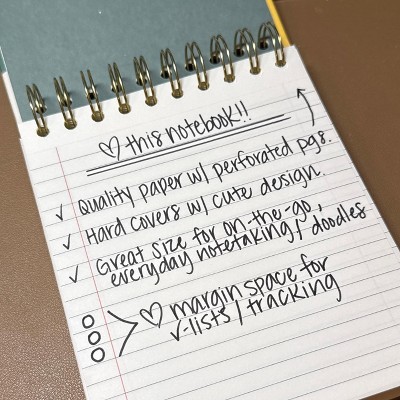 ♡ this notebook!!
✓ Quality paper w/ perforated pgs.
✓ Hard covers w/ cute design.
✓ Great size for on-the-go,
everyday notetaking / doodles
♡ margin space for
✓-lists / tracking